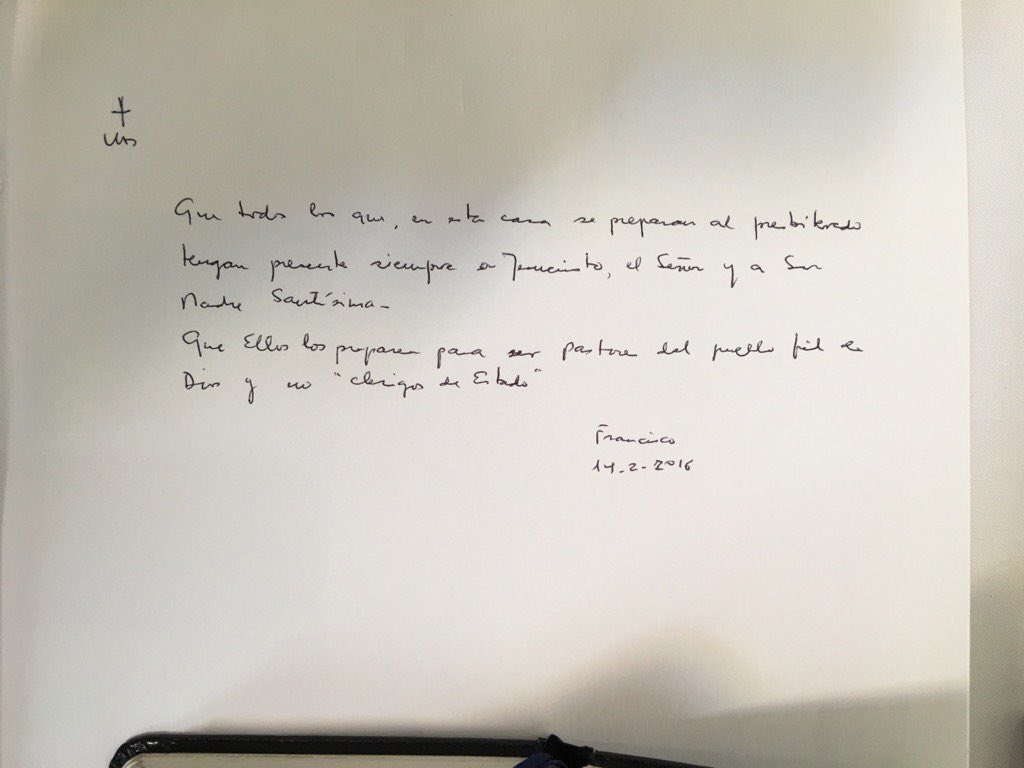 Que todos los que, en esta casa se preparan al presbiterado
tengan presente siempre a Jesucristo, el Señor y a Su
Madre Santísima.
Que Ellos los preparen para ser pastores del pueblo fiel de
Dios y no "clérigos de Estado"
Francisco
14-2-2016